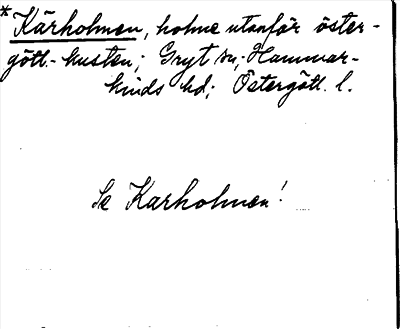 * Kärholmen, holme utanför öster-
götl.-kusten; Gryt sn; Hammar-
kinds hd; Östergötl. l.
Se Karholmen!